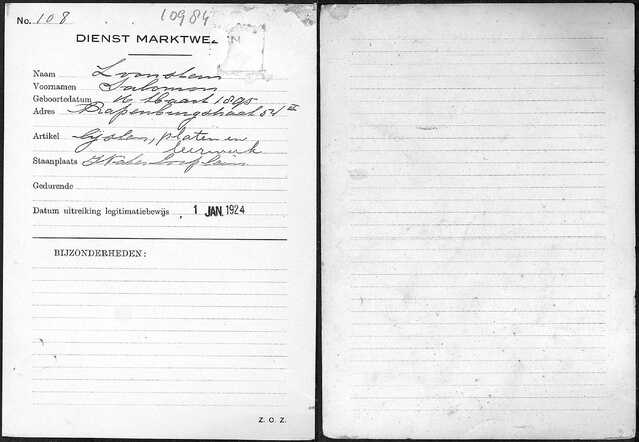 No. 108
10984
DIENST MARKTWE
Naam
Voornamen Salomon
Geboortedatum 16 Maart 1895
Adres Rapenburgstraat 54 II
Artikel lijsten, platen en
leerwerk
Staanplaats Waterlooplein
Gedurende
Datum uitreiking legitimatiebewijs, 1 JAN. 1924
BIJZONDERHEDEN:
Z. O. Z.